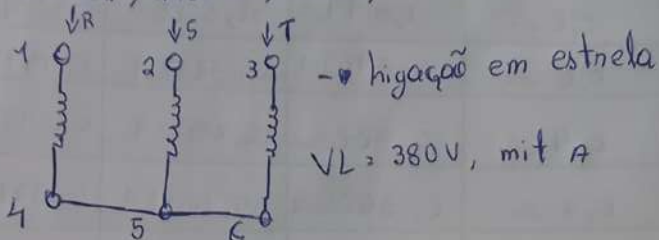 R S T
1 2 3 - ligação em estrela
VL = 380V, mit A
4 5 6